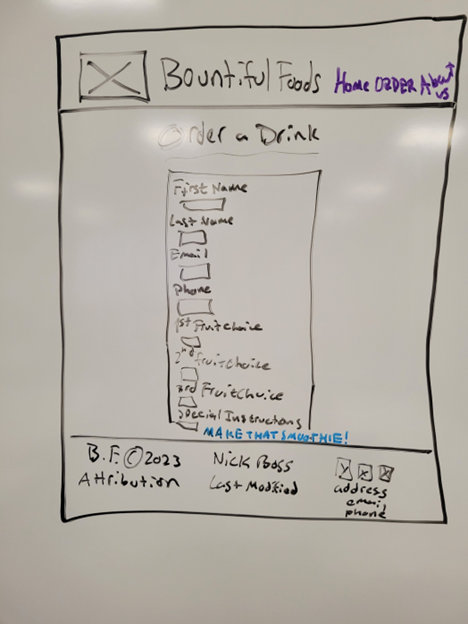 Bountiful Foods
Home ORDER About us
Order a Drink
First Name
Last Name
Email
Phone
1st Fruit Choice
2nd Fruit Choice
3rd Fruit Choice
Special Instructions
MAKE THAT SMOOTHIE!
B.F. © 2023
Attribution
Nick Boss
Last Modified
address
email
phone